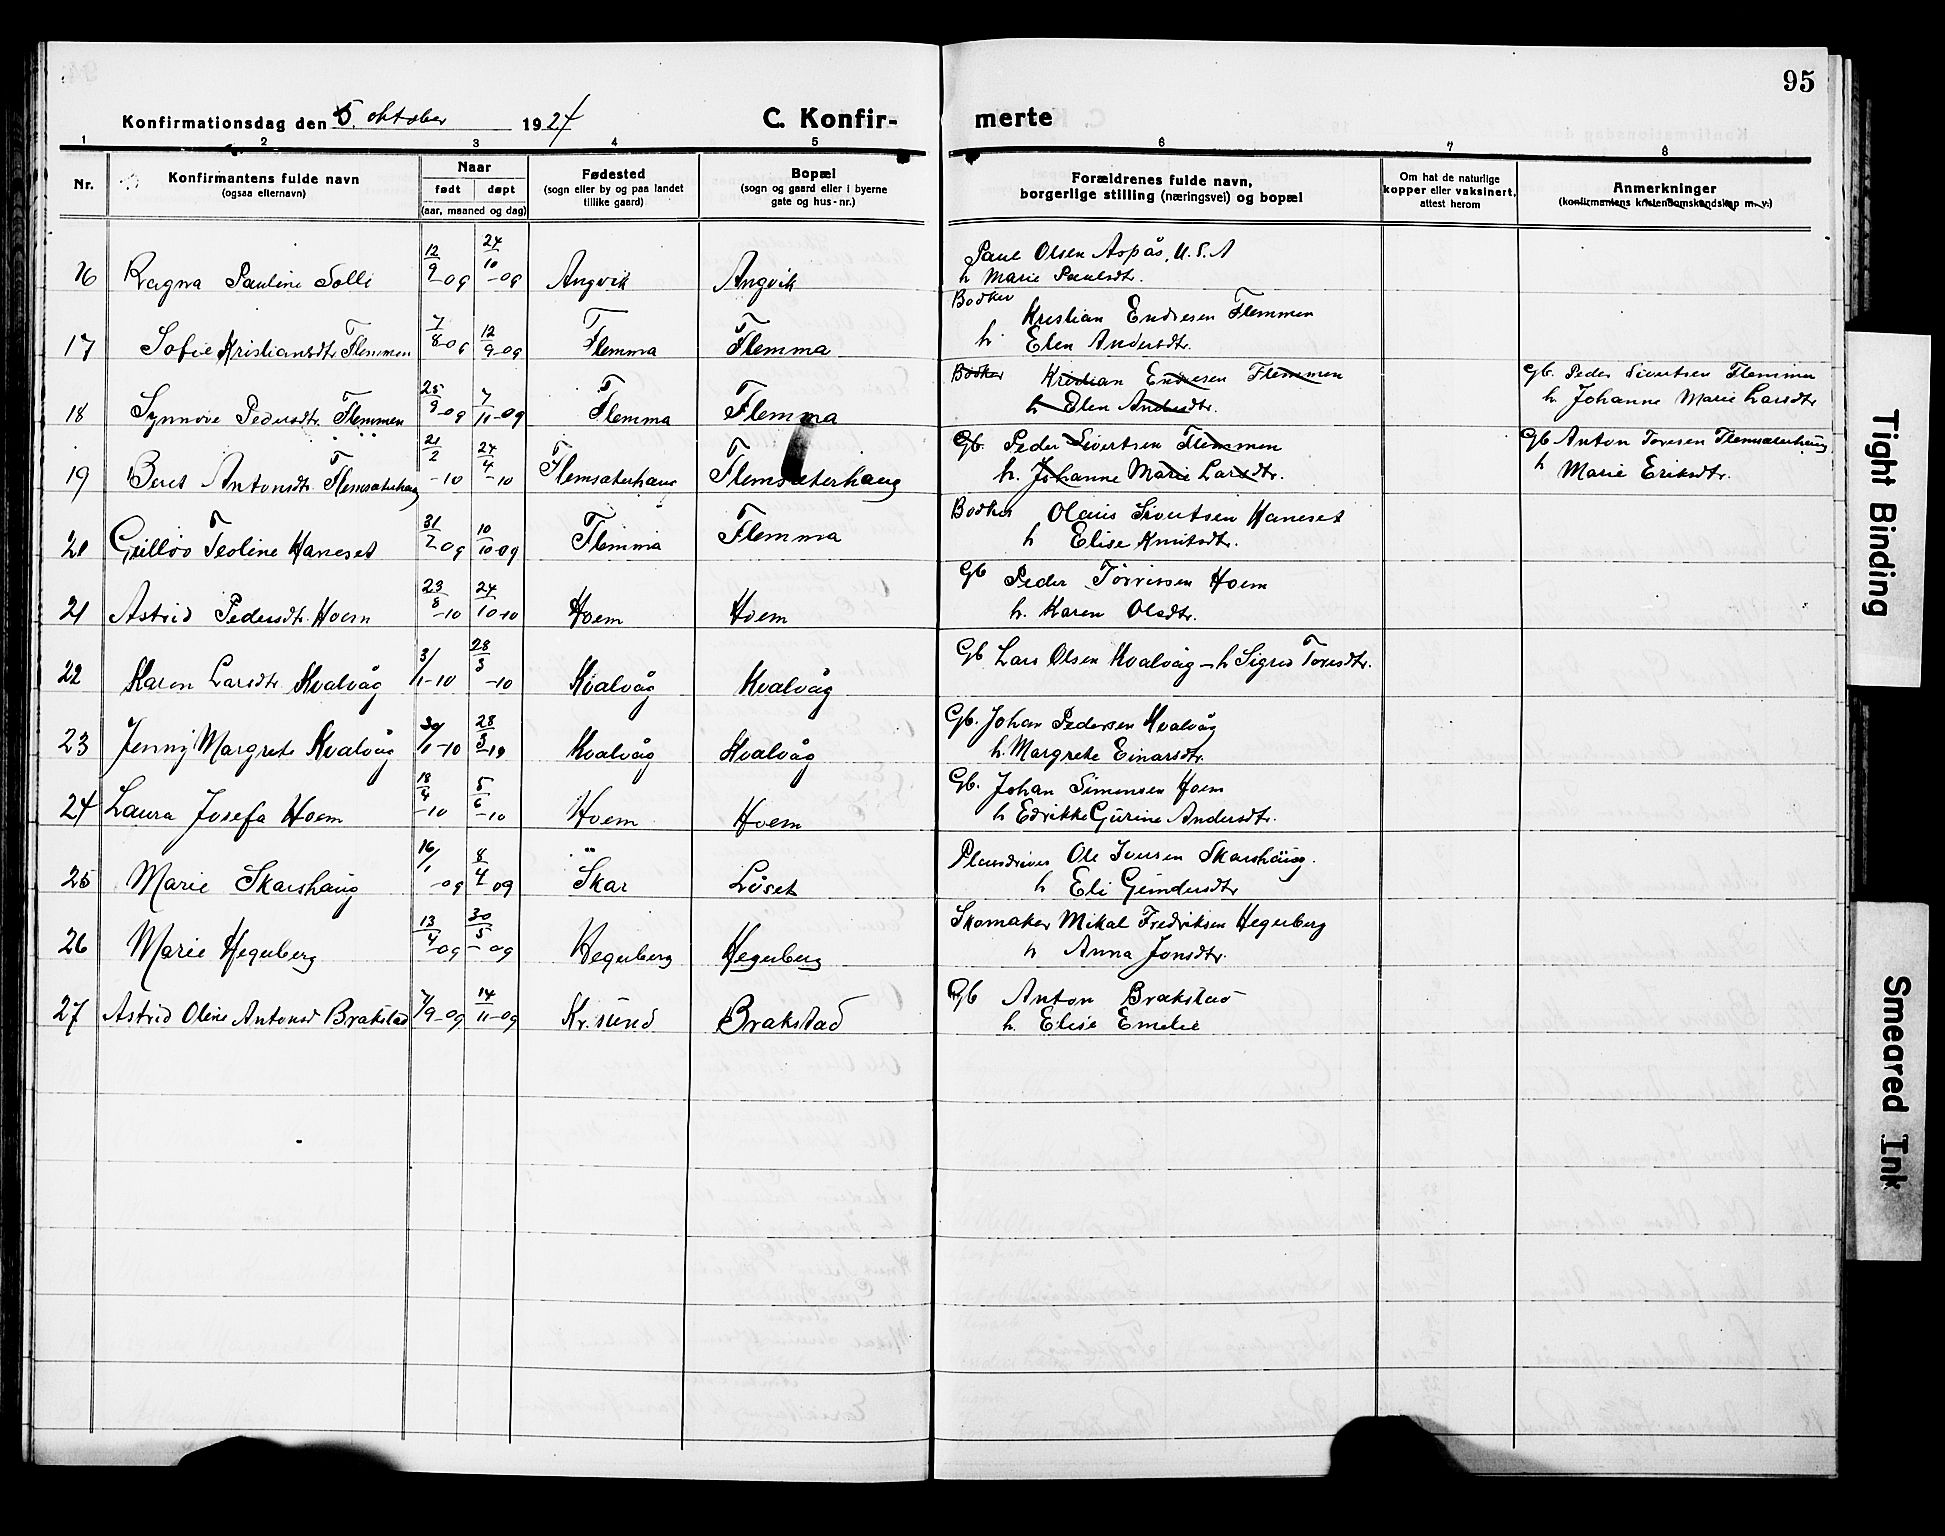 95
Konfirmationsdag den 5. oktober 1924 C. Konfirmerte
1 2 3 4 5 6 7 8
Nr.
Konfirmantens fulde navn
(ogsaa efternavn)
Naar
født døpt
(aar, maaned og dag)
Fødested
(sogn eller by og paa landet
tillike gaard)
Bopæl
(sogn og gaard eller i byerne
gate og hus-nr.)
Forældrenes fulde navn,
borgerlige stilling (næringsvei) og bopæl
Om hat de naturlige
kopper eller vaksinert,
attest herom
Anmerkninger
(konfirmantens kristendomskundskap m. v.)
16 Ragna Pauline Solli 12/9-09 24/10-09 Angvik Angvik Paul Olsen Aspås, U.S.A
h Marie Paulsdtr.
17 Sofie Kristiansdtr Flemmen 7/8-09 12/9-09 Flemma Flemma Bødker Kristian Endresen Flemmen
h. Elen Andersdtr.
18 Synnøve Pedersdtr. Flemmen 25/9-09 7/11-09 Flemma Flemma Bødker Kristian Endresen Flemmen Gb. Peder Sivertsen Flemmen
h Elen Andersdtr. h. Johanne Marie Larsdtr
19 Beret Antonsdtr. Flemsæterhaug 21/2-10 24/4-10 Flemsæterhaug Flemsæterhaug Gb. Peder Sivertsen Flemmen Gb Anton Toresen Flemsæterhaug
h. Johanne Marie Larsdtr. h Marie Eriksdtr.
20 Gulløv Teoline Haneset 31/7-09 10/10-09 Flemma Flemma Bødker Olaus Sivertsen Haneset
h Elise Knutsdtr.
21 Astrid Pedersdtr. Hoem 23/8-10 24/10-10 Hoem Hoem Gb Peder Torrissen Hoem
h. Karen Olsdtr.
22 Karen Larsdtr Kvalvåg 3/1-10 28/3-10 Kvalvåg Kvalvåg Gb Lars Olsen Kvalvåg - h Sigrid Toresdtr.
23 Jenny Margrete Kvalvåg 30/1-10 28/3-10 Kvalvåg Kvalvåg Gb. Johan Pedersen Kvalvåg
h. Margrete Einarsdtr.
24 Laura Josefa Hoem 18/4-10 5/6-10 Hoem Hoem Gb. Johan Simonsen Hoem
h Edrikke Gurine Andersdtr.
25 Marie Skarshaug 16/1-09 8/4 09 Skar Løset Pladsdriver Ole Iversen Skarshaug.
h Eli Gundersdtr
26 Marie Hegerberg 13/4-09 30/5-09 Hegerberg Hegerberg Skomaker Mikal Fredriksen Hegerberg
h Anna Jonsdtr.
27 Astrid Oline Antonsd Brakstad 7/9-09 14/11-09 Kr.sund Brakstad Gb Anton Brakstad
h. Elise Emelie
Tight Binding
Smeared Ink